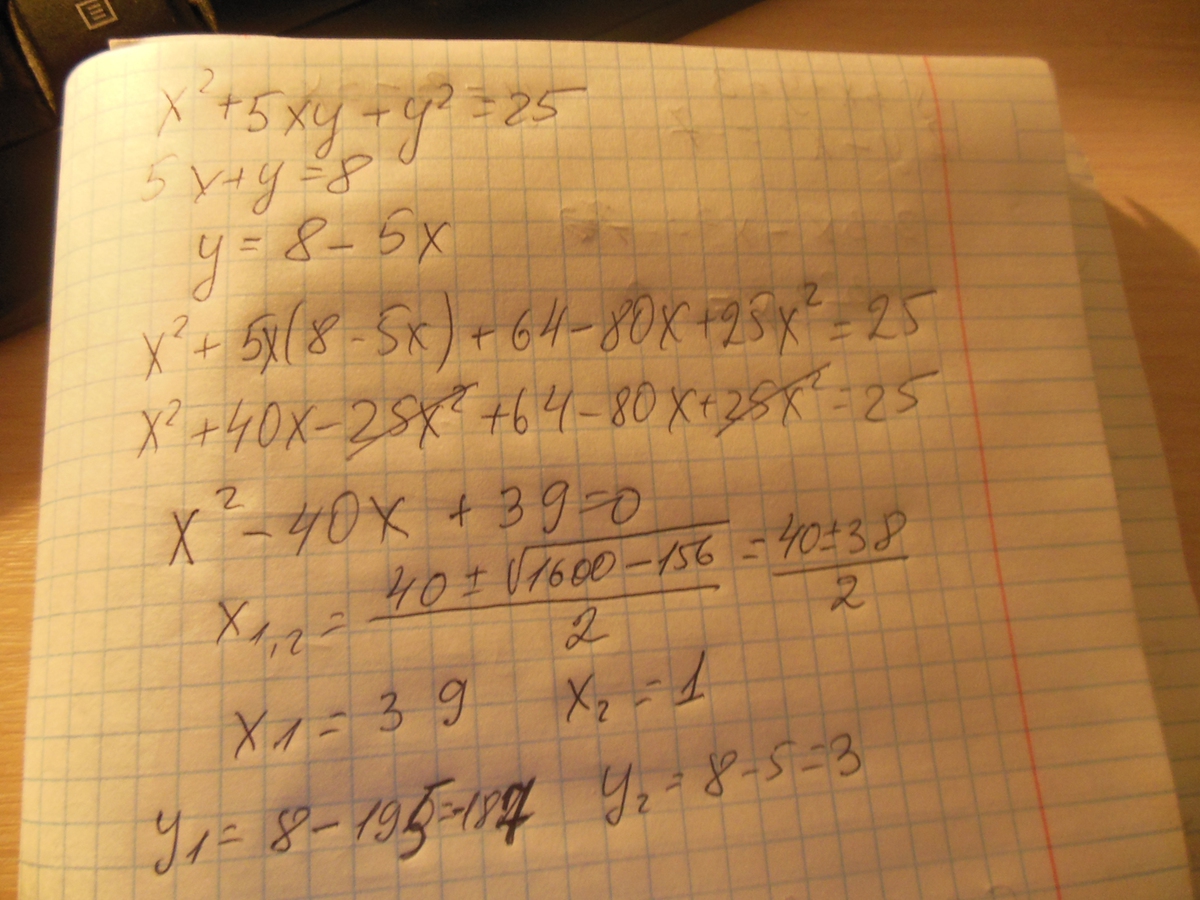 x² + 5xy + y² = 25
5x + y = 8
y = 8 - 5x
x² + 5x(8 - 5x) + 64 - 80x + 25x² = 25
x² + 40x - 25x² + 64 - 80x + 25x² = 25
x² - 40x + 39 = 0
x₁,₂ = (40 ± √(1600 - 156))/2 = (40 ± 38)/2
x₁ = 39 x₂ = 1
y₁ = 8 - 195 = -187 y₂ = 8 - 5 = 3